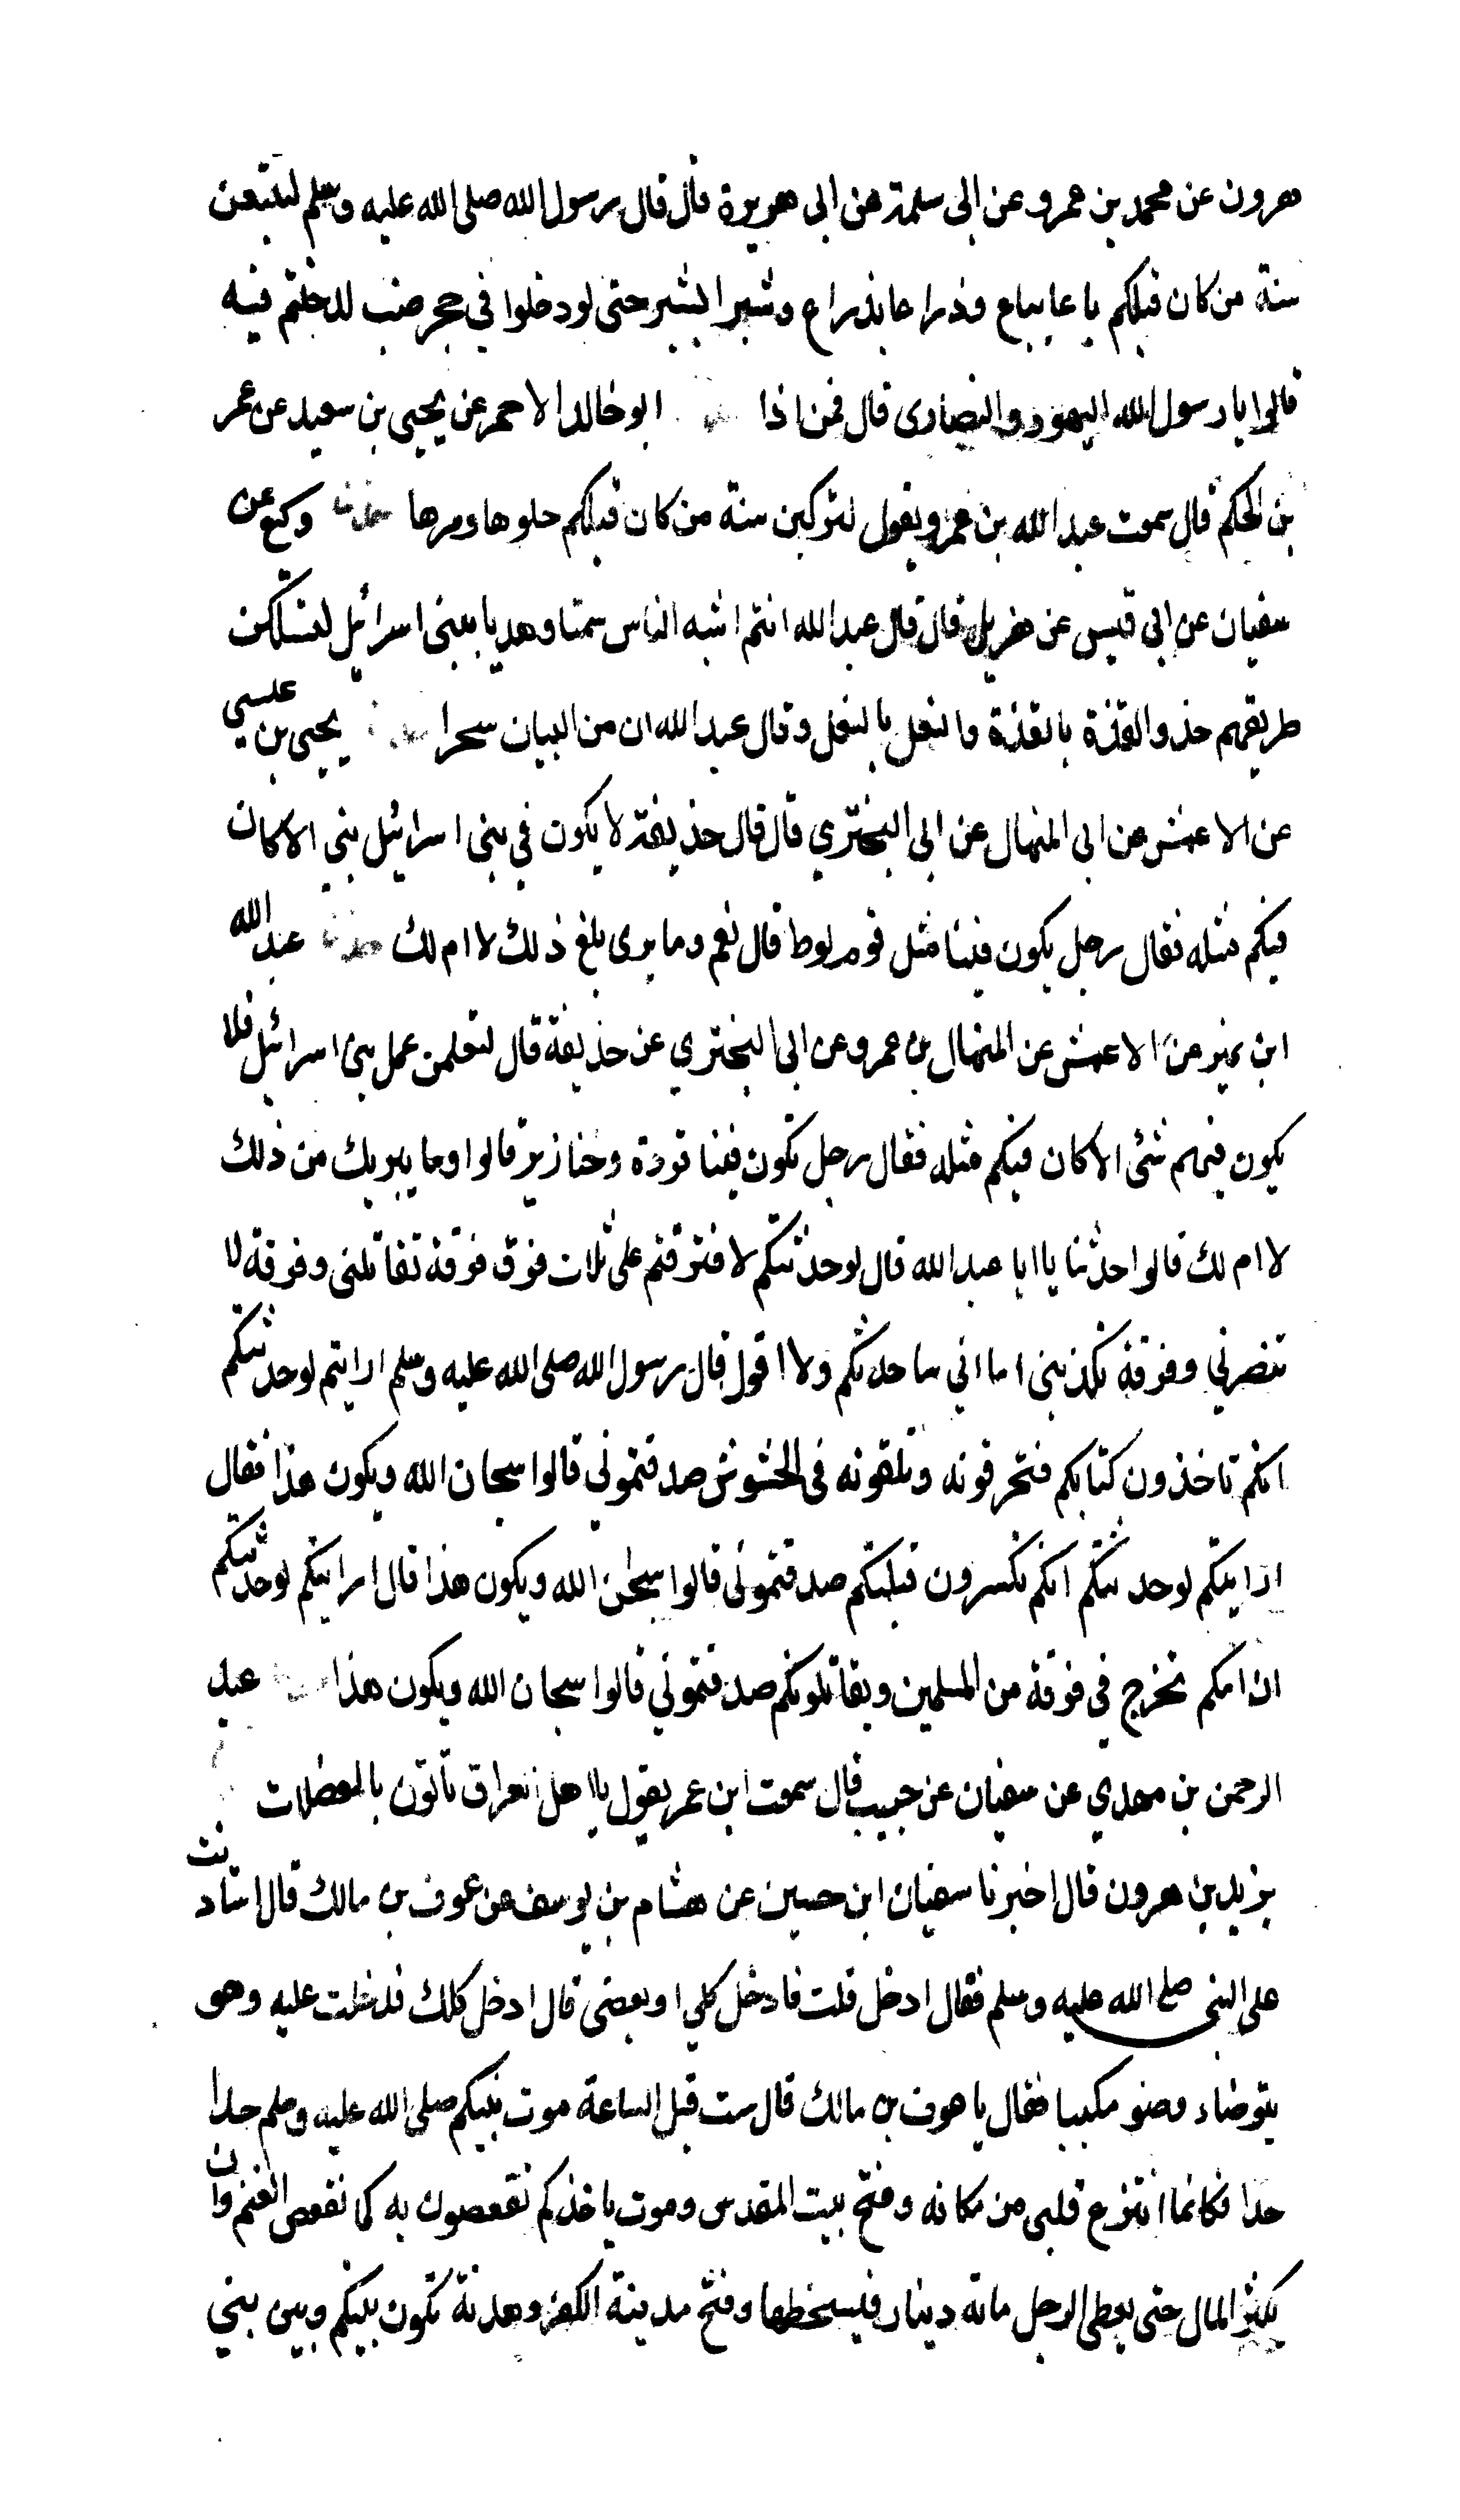 هرون عن محمد بن عمرو عن ابى سلمة عن ابى هريرة قال قال رسول الله صلى الله عليه وسلم لتتبعن
سنة من كان قبلكم باعا بباع وذراعا بذراع وشبرا بشبر حتى لو دخلوا في جحر ضب لدخلتم فيه
قالوا يا رسول الله اليهود والنصارى قال فمن اذا ابو خالد الاحمر عن يحيى بن سعيد عن عمر
بن الحكم قال سمعت عبد الله بن عمرو يقول لتركبن سنة من كان قبلكم حلوها ومرها حدثنا وكيع عن
سفيان عن ابى قيس عن هزيل قال قال عبد الله انتم اشبه الناس سمتا وهديا ببنى اسرائيل لتسلكن
طريقهم حذو القذة بالقذة والنعل بالنعل وقال عبد الله ان من البيان سحرا يحيى بن عيسي
عن الاعمش عن ابى المنهال عن ابى البختري قال قال حذيفة لا يكون في بنى اسرائيل شئ الا كان
فيكم مثله فقال رجل يكون فينا مثل قوم لوط قال نعم وما يرى بلغ ذلك لا ام لك حدثنا عبد الله
ابن نمير عن الاعمش عن المنهال بن عمرو عن ابى البختري عن حذيفة قال لتعلمن عمل بنى اسرائيل فلا
يكون فيهم شئ الا كان فيكم مثله فقال رجل تكون فينا قردة وخنازير قالوا وما يبريك من ذلك
لا ام لك قالوا حدثنا يا ابا عبد الله قال لو حدثتكم لافترقتم على ثلاث فرق فرقة تقاتلنى وفرقة لا
تنصرني وفرقة تكذبنى اما انى ساحدثكم ولا اقول قال رسول الله صلى الله عليه وسلم ارايتم لو حدثتكم
انكم تاخذون كتابكم فتحرقونه وتلقونه فى الحشوش صدقتموني قالوا سبحان الله ويكون هذا فقال
ارايتكم لو حدثتكم انكم تكسرون قبلتكم صدقتمونى قالوا سبحان الله ويكون هذا قال ارايتكم لو حدثتكم
ان امكم تخرج في فرقة من المسلمين ويقاتلونكم صدقتموني قالوا سبحان الله ويكون هذا عبد
الرحمن بن مهدي عن سفيان عن حبيب قال سمعت ابن عمر يقول يا اهل العراق تاتون بالمعضلات
يزيد بن هرون قال اخبرنا سفيان ابن حصين عن هشام بن يوسف عن عوف بن مالك قال استاذنت
على النبى صلى الله عليه وسلم فقال ادخل قلت فادخل كلي او بعضى قال ادخل كلك فدخلت عليه وهو
يتوضاء وضو مكيبا فقال يا عوف بن مالك قال ست قبل الساعة موت نبيكم صلى الله عليه وسلم خذا
حذا فكانما انتزع قلبى من مكانه وفتح بيت المقدس وموت ياخذكم تقعصون به كما تقعص الغنم وان
يكثر المال حتى يعطى الرجل ماته دينار فيسخطها وفتح مدينة الكفر وهدنة تكون بينكم وبين بني